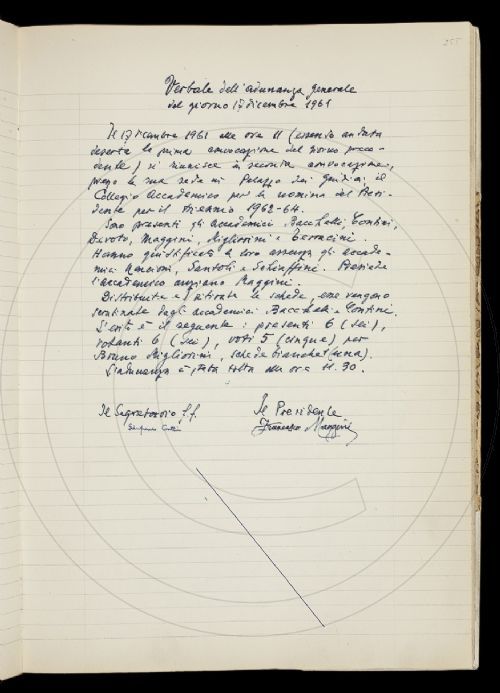 255
Verbale dell'adunanza generale
del giorno 17 dicembre 1961
Il 17 dicembre 1961 alle ore 11 (essendo andata
deserta la prima convocazione del giorno prece-
dente) si riunisce in seconda convocazione,
presso la sua sede nel Palazzo dei Giudici il
Collegio Accademico per la nomina del Presi-
dente per il triennio 1962-64.
Sono presenti gli accademici Bacchelli, Contini,
Devoto, Maggini, Migliorini e Terracini.
Hanno giustificato la loro assenza gli accade-
mici Nencioni, Santoli e Schiaffini. Presiede
l'accademico anziano Maggini.
Distribuite e ritirate le schede, esse vengono
scrutinate dagli accademici Bacchelli e Contini.
L'esito è il seguente: presenti 6 (sei),
votanti 6 (sei), voti 5 (cinque) per
Bruno Migliorini, schede bianche 1 (una).
L'adunanza è stata tolta alle ore 11.30.
Il Segretario f.f. Il Presidente
Francesco Maggini